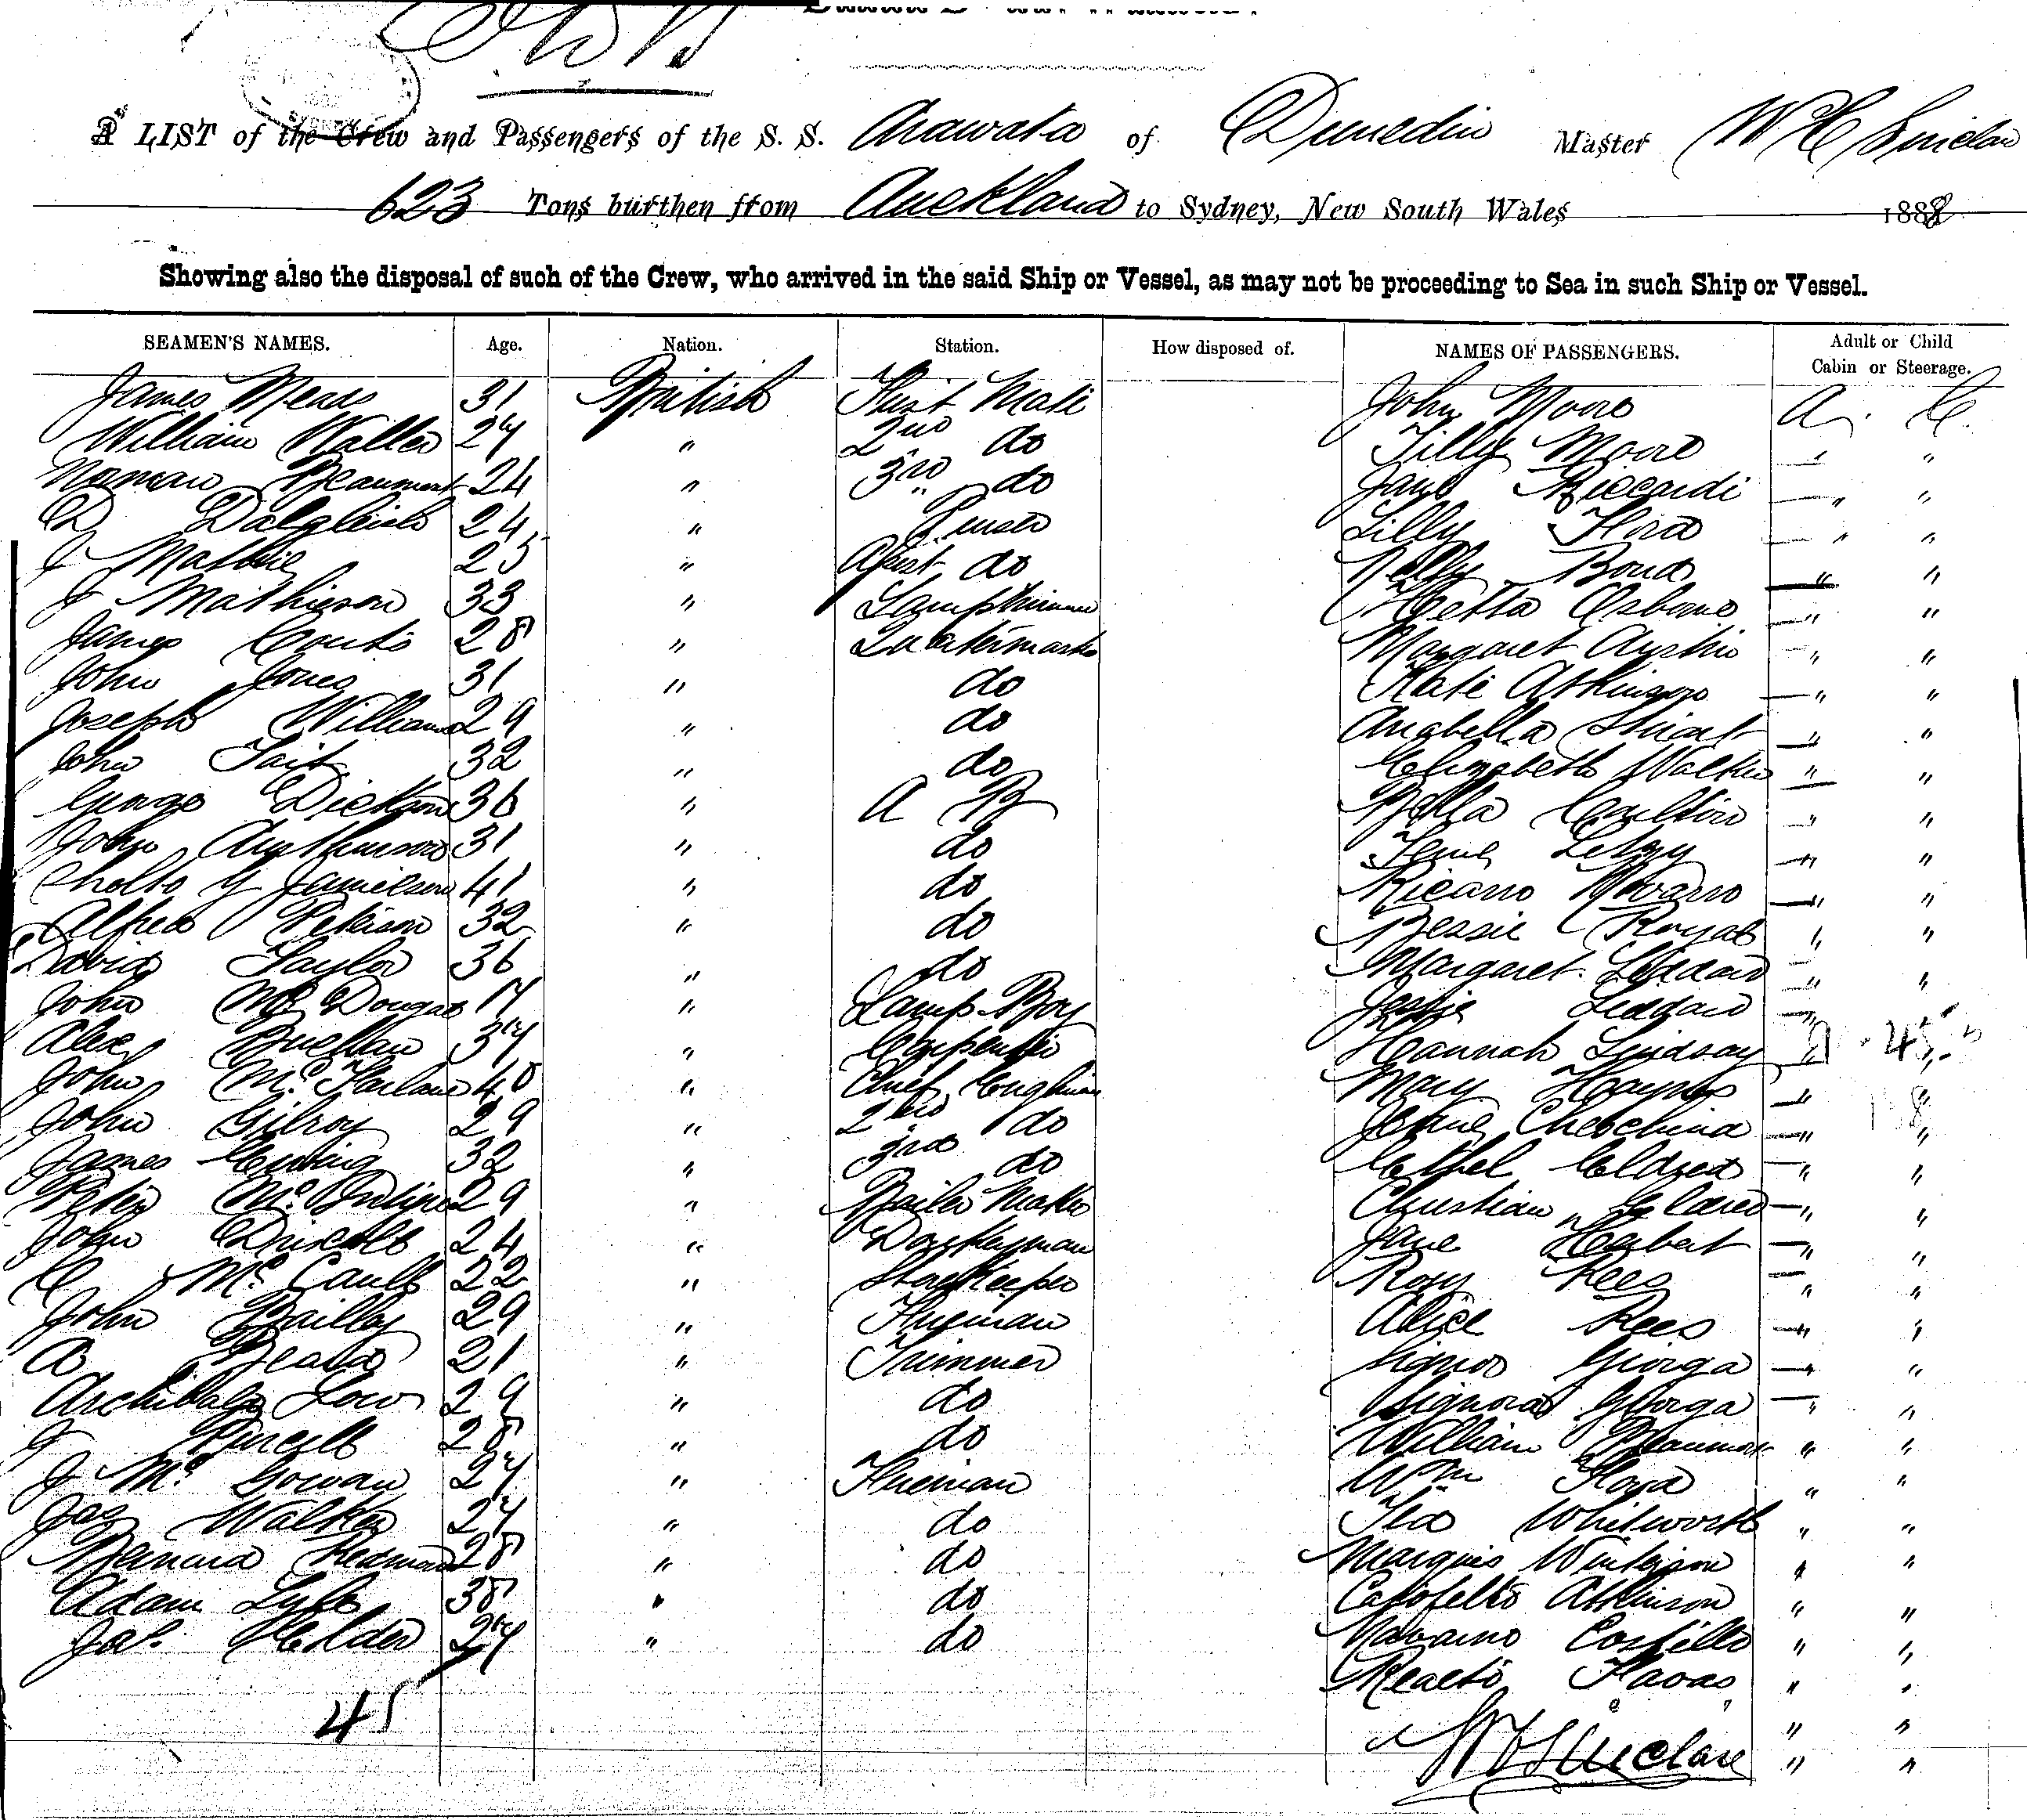 A LIST of the Crew and Passengers of the S. S. Arawata of Dunedin Master W C Sinclair
623 Tons burthen from Auckland to Sydney, New South Wales 1882
Showing also the disposal of such of the Crew, who arrived in the said Ship or Vessel, as may not be proceeding to Sea in such Ship or Vessel.
SEAMEN'S NAMES. Age. Nation. Station. How disposed of. NAMES OF PASSENGERS. Adult or Child Cabin or Steerage.
James Mears 31 British First Mate John Moore A. C.
William Waller 27 " 2nd do Tilly Moore " "
Norman Beaumont 24 " 3rd do Jane Riccardi " "
D Dalgleish 24 " Purser Lilly Flora " "
J 25 " Asst do Nelly Bond " "
J Mathieson 33 " Lamptrimmer Hetta Osborne " "
James Couts 28 " Quartermaster Margaret Austin " "
John Jones 31 " do Kate Atkinson " "
Joseph Williams 29 " do Anabella Stuart " "
John Tait 32 " do Elizabeth Walker " "
George Dickson 36 " A B Bella Coulton " "
John 31 " do " "
Sholto G Jamieson 41 " do Navarro " "
Alfred Peterson 32 " do Bessie Royal " "
David Taylor 36 " do Margaret Liddard " "
John McDougal 17 " Lamp Boy Jessie Liddard " "
Alex 37 " Carpenter Hannah Lindsay " "
John McFarlane 40 " Chief Engineer Mary Haynes " "
John Gilroy 29 " 2nd do " "
James Ewing 32 " 3rd do Ethel Eldred " "
Peter McIntyre 29 " Boiler Maker Christian Eldred " "
John Driscoll 24 " Donkeyman Jane Herbert " "
C McCaull 22 " Storekeeper Rosy Rees " "
John Bailley 29 " Fireman Alice Rees " "
A Beard 21 " Trimmer Signor Giorga " "
Archibald Low 29 " do Signora Giorga " "
J Purcell 28 " do William Beaumont " "
J McGowan 27 " Fireman Wm Flora " "
Jas Walker 27 " do Whitworth " "
Barnard Redmond 28 " do Marquis " "
Adam Lyle 38 " do Atkinson " "
Jas. Holder 27 " do Navarino Costello " "
45 " "
W C Sinclair " "